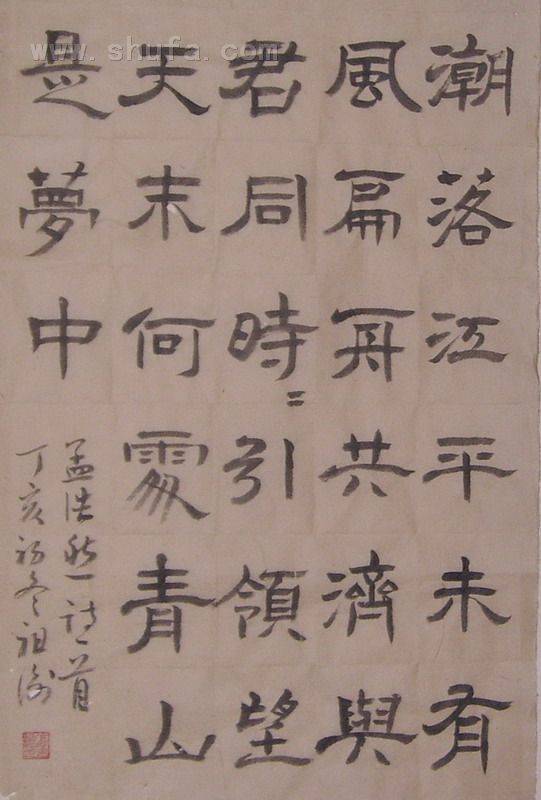 www.shufa.com
潮落江平未有
風扁舟共濟與
君同時〻引領望
天末何處青山
是夢中
孟浩然詩一首
丁亥初冬祖